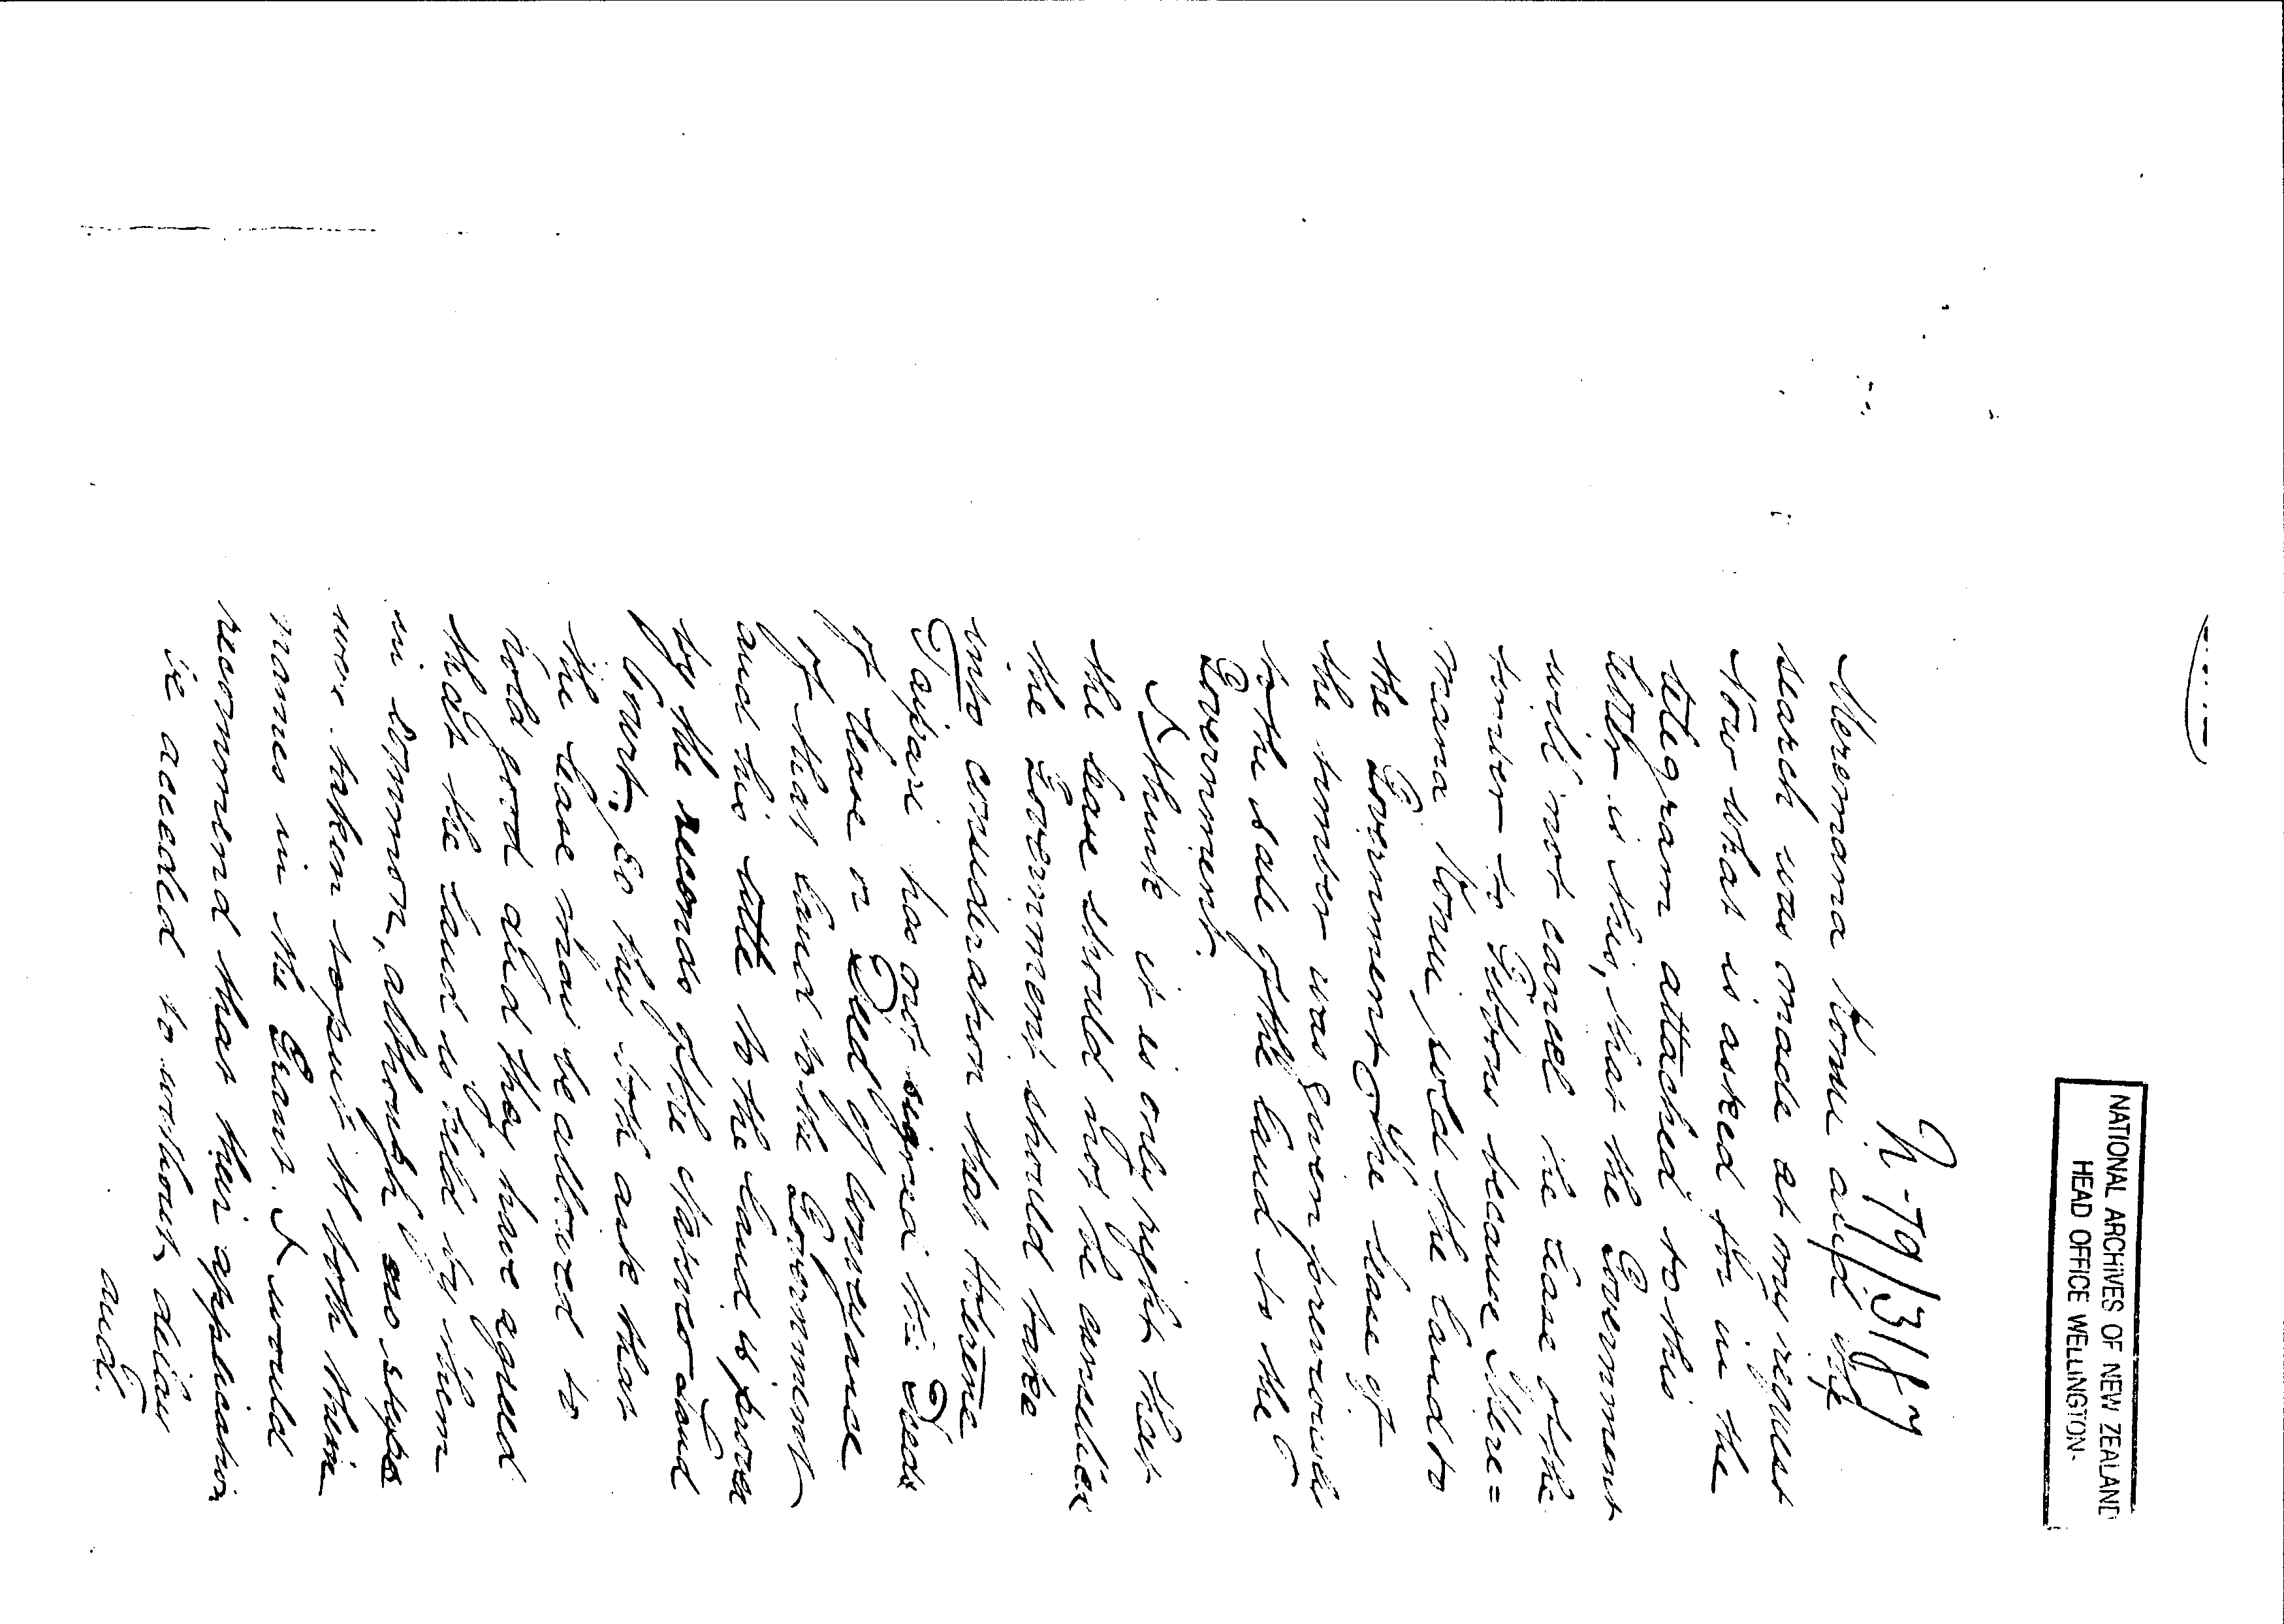 NATIONAL ARCHIVES OF NEW ZEALAND
HEAD OFFICE WELLINGTON
N-79/3187
Meremana Konui and wife
search was made at my request
Now what is asked for in the
telegram attached to this
letter is this, that the Government
will not cancel the lease of the
timber to Gibbons because Mere=
mana Konui sold the land to
the Government. The lease of
the timber was given previously
to the sale of the land to the
Government.
I think it is only right that
the lease should not be cancelled
the Government should take
into consideration that Hohepa
Taipari has not signed the Deeds
of lease or Deed of conveyance
of that land to the Government
and his title to the land is proved
by the records of the Native Land
Court, so they both ask that
the lease may be allowed to
hold good and they have agreed
that the land is held by them
in common, although no steps
were taken to put it both their
names in the Grant. I would
recommend that their application
be acceded to without delay
and.